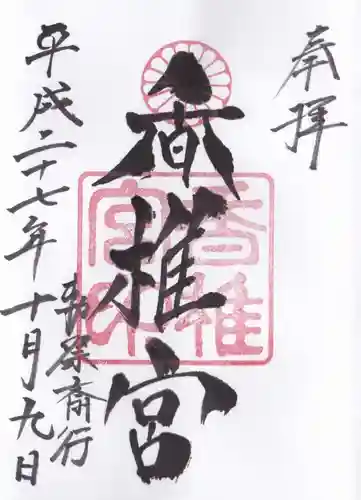 奉拝
香椎宮
香椎宮印
斎行
平成二十七年十月九日